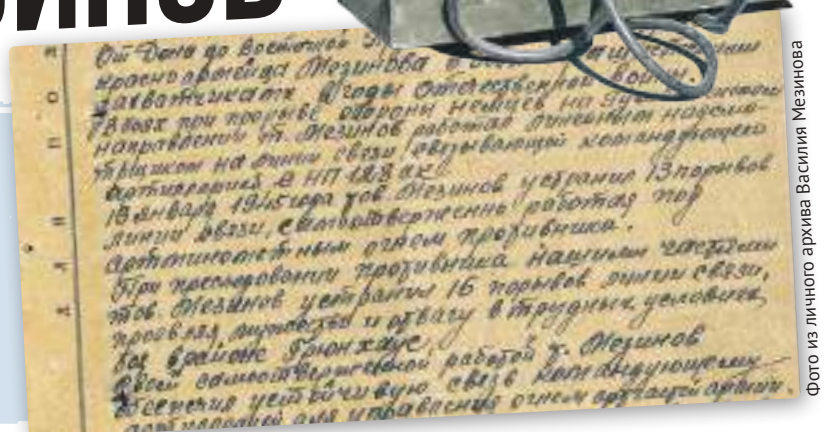 ИНОВ
От Дона до Восточной
красноармейца Мезинова
захватчиками в годы Отечественной войны.
В боях при прорыве обороны немцев на
направлении т. Мезинов работал линейным надсмо-
трщиком на линии связи связывающей командующего
артиллерией с НП 128 ск.
18 января 1945 года тов. Мезинов устранил 13 порывов
линии связи, самоотверженно работая под
артминометным огнем противника.
При преследовании противника нашими частями
тов. Мезинов устранил 16 порывов линии связи,
проявляя мужество и отвагу в трудных условиях
боя в районе Грюнхаус
Своей самоотверженной работой т. Мезинов
обеспечил устойчивую связь командующему
артиллерией для управления огнем
Фото из личного архива Василия Мезинова